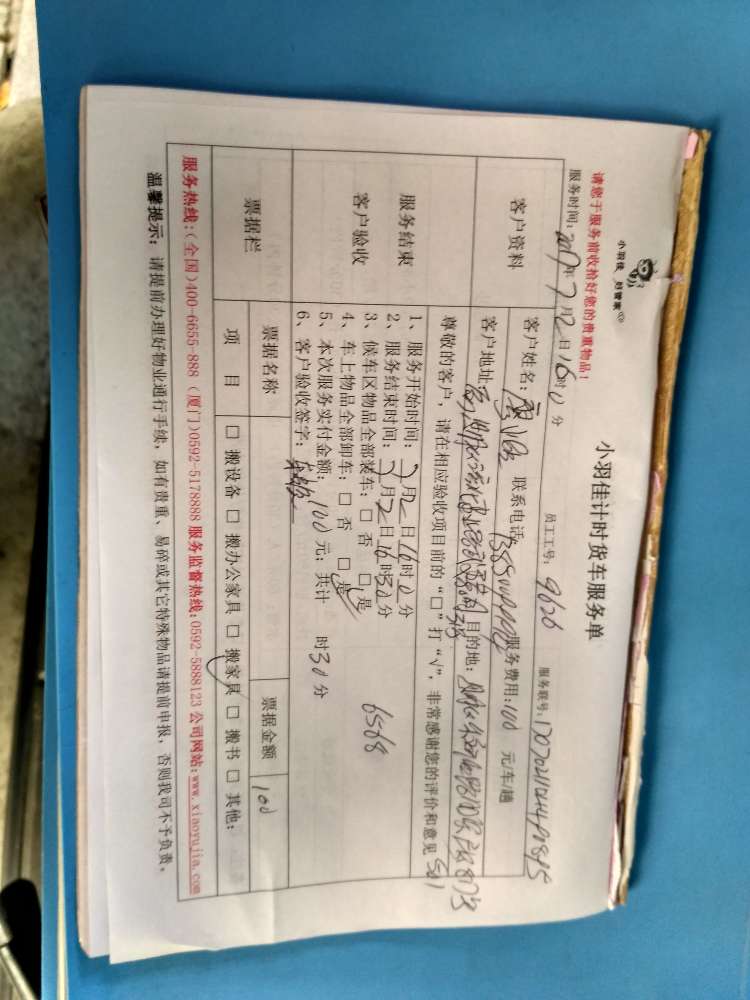 小羽佳 好管家
小羽佳计时货车服务单
请您于服务前收拾好您的贵重物品！
员工工号: 9626
服务联号:
服务时间: 2017年7月2日16时0分
客户资料
客户姓名: 联系电话: 服务费用: 100 元/车/趟
客户地址: 目的地:
服务结束
客户验收
尊敬的客户，请在相应验收项目前的“□”打“√”，非常感谢您的评价和意见
1、服务开始时间: 7月2日16时0分
2、服务结束时间: 7月2日16时30分
3、候车区物品全部装车: □ 否 □ 是
4、车上物品全部卸车: □ 否 □ 是
6568
5、本次服务实付金额: 100 元; 共计 时30分
6、客户验收签字:
票据栏
票据名称 票据金额 100
项 目 □ 搬设备 □ 搬办公家具 □ 搬家具 □ 搬书 □ 其他:
服务热线:(全国)400-6655-888 (厦门)0592-5178888 服务监督热线:0592-5888123 公司网站:www.xiaoyujia.com
温馨提示: 请提前办理好物业通行手续，如有贵重、易碎或其它特殊物品请提前申报，否则我司不予负责。